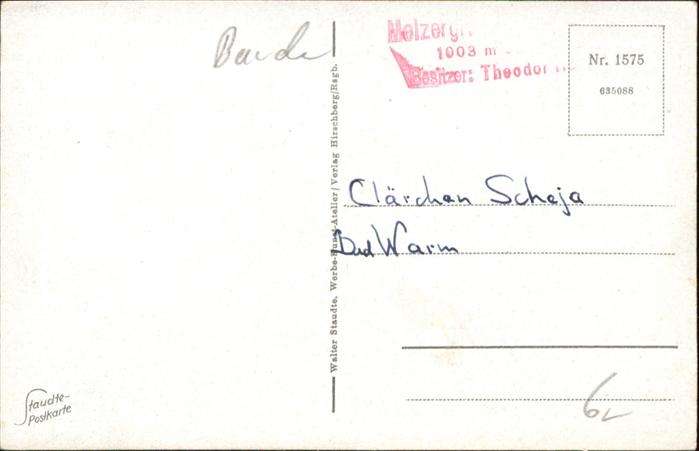 Melzergr
1003 m
Besitzer: Theodor
Nr. 1575
635088
Walter Staudte, Werbe-Kunst-Atelier/Verlag Hirschberg/Rsgb.
Clärchen Scheja
Bad Warm
Staudte-
Postkarte